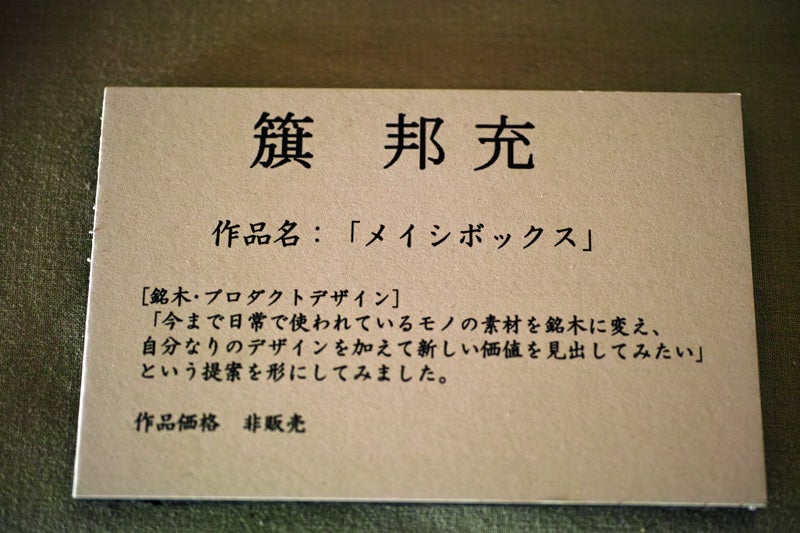 籏 邦充
作品名：「メイシボックス」
［銘木・プロダクトデザイン］
「今まで日常で使われているモノの素材を銘木に変え、
自分なりのデザインを加えて新しい価値を見出してみたい」
という提案を形にしてみました。
作品価格 非販売